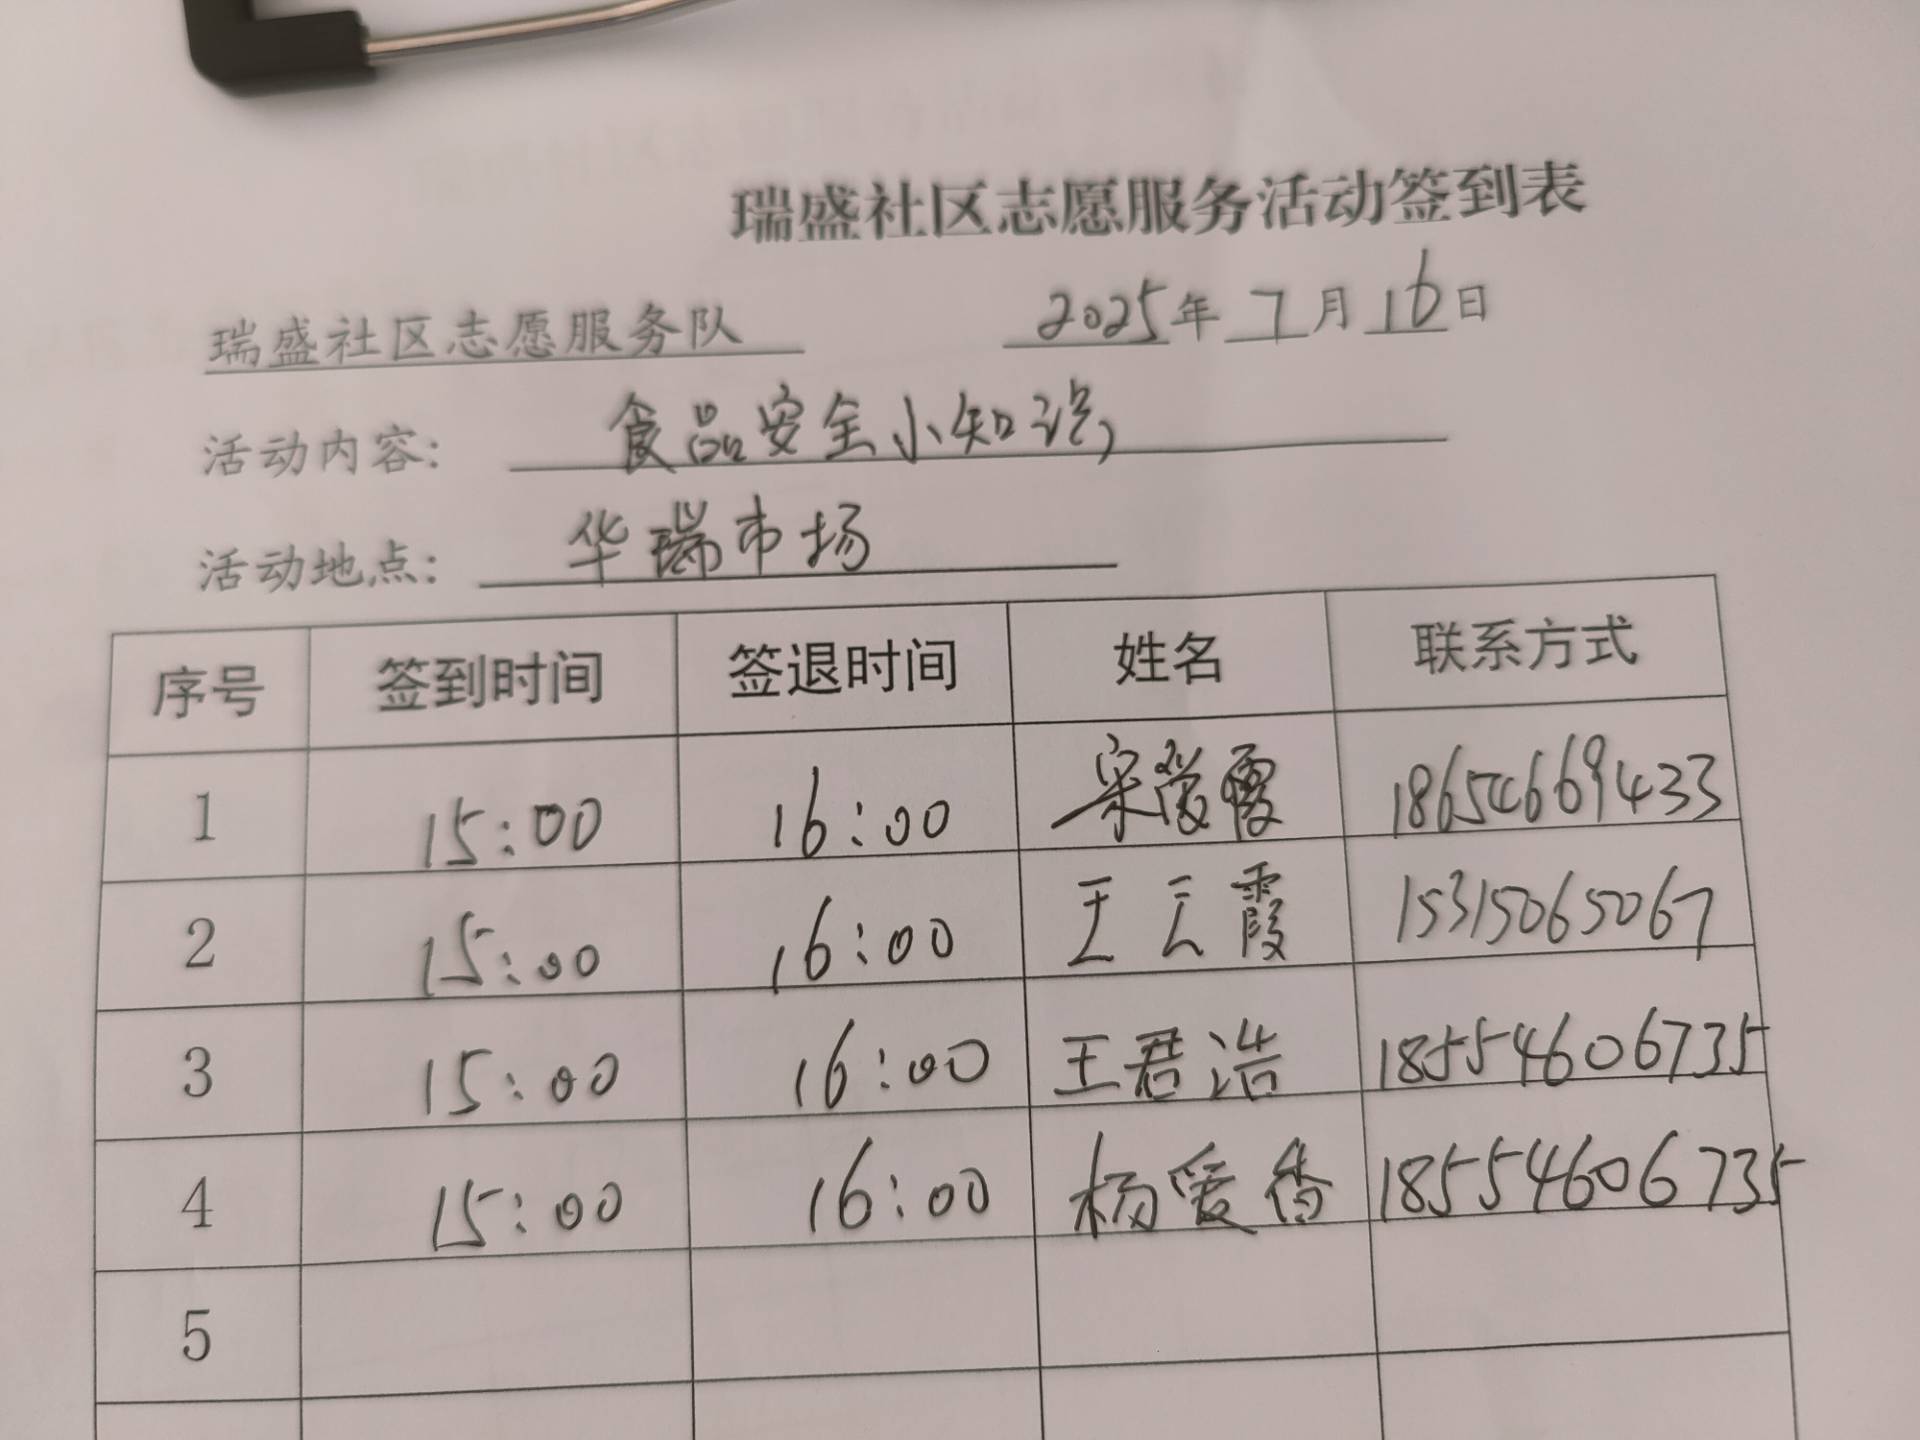 瑞盛社区志愿服务活动签到表
瑞盛社区志愿服务队 2025年 7月 16日
活动内容: 食品安全小知识
活动地点: 华瑞市场
序号 签到时间 签退时间 姓名 联系方式
1 15:00 16:00 宋莹霞 18654669433
2 15:00 16:00 王云霞 15315065067
3 15:00 16:00 王君浩 18554606735
4 15:00 16:00 杨爱香 18554606735
5